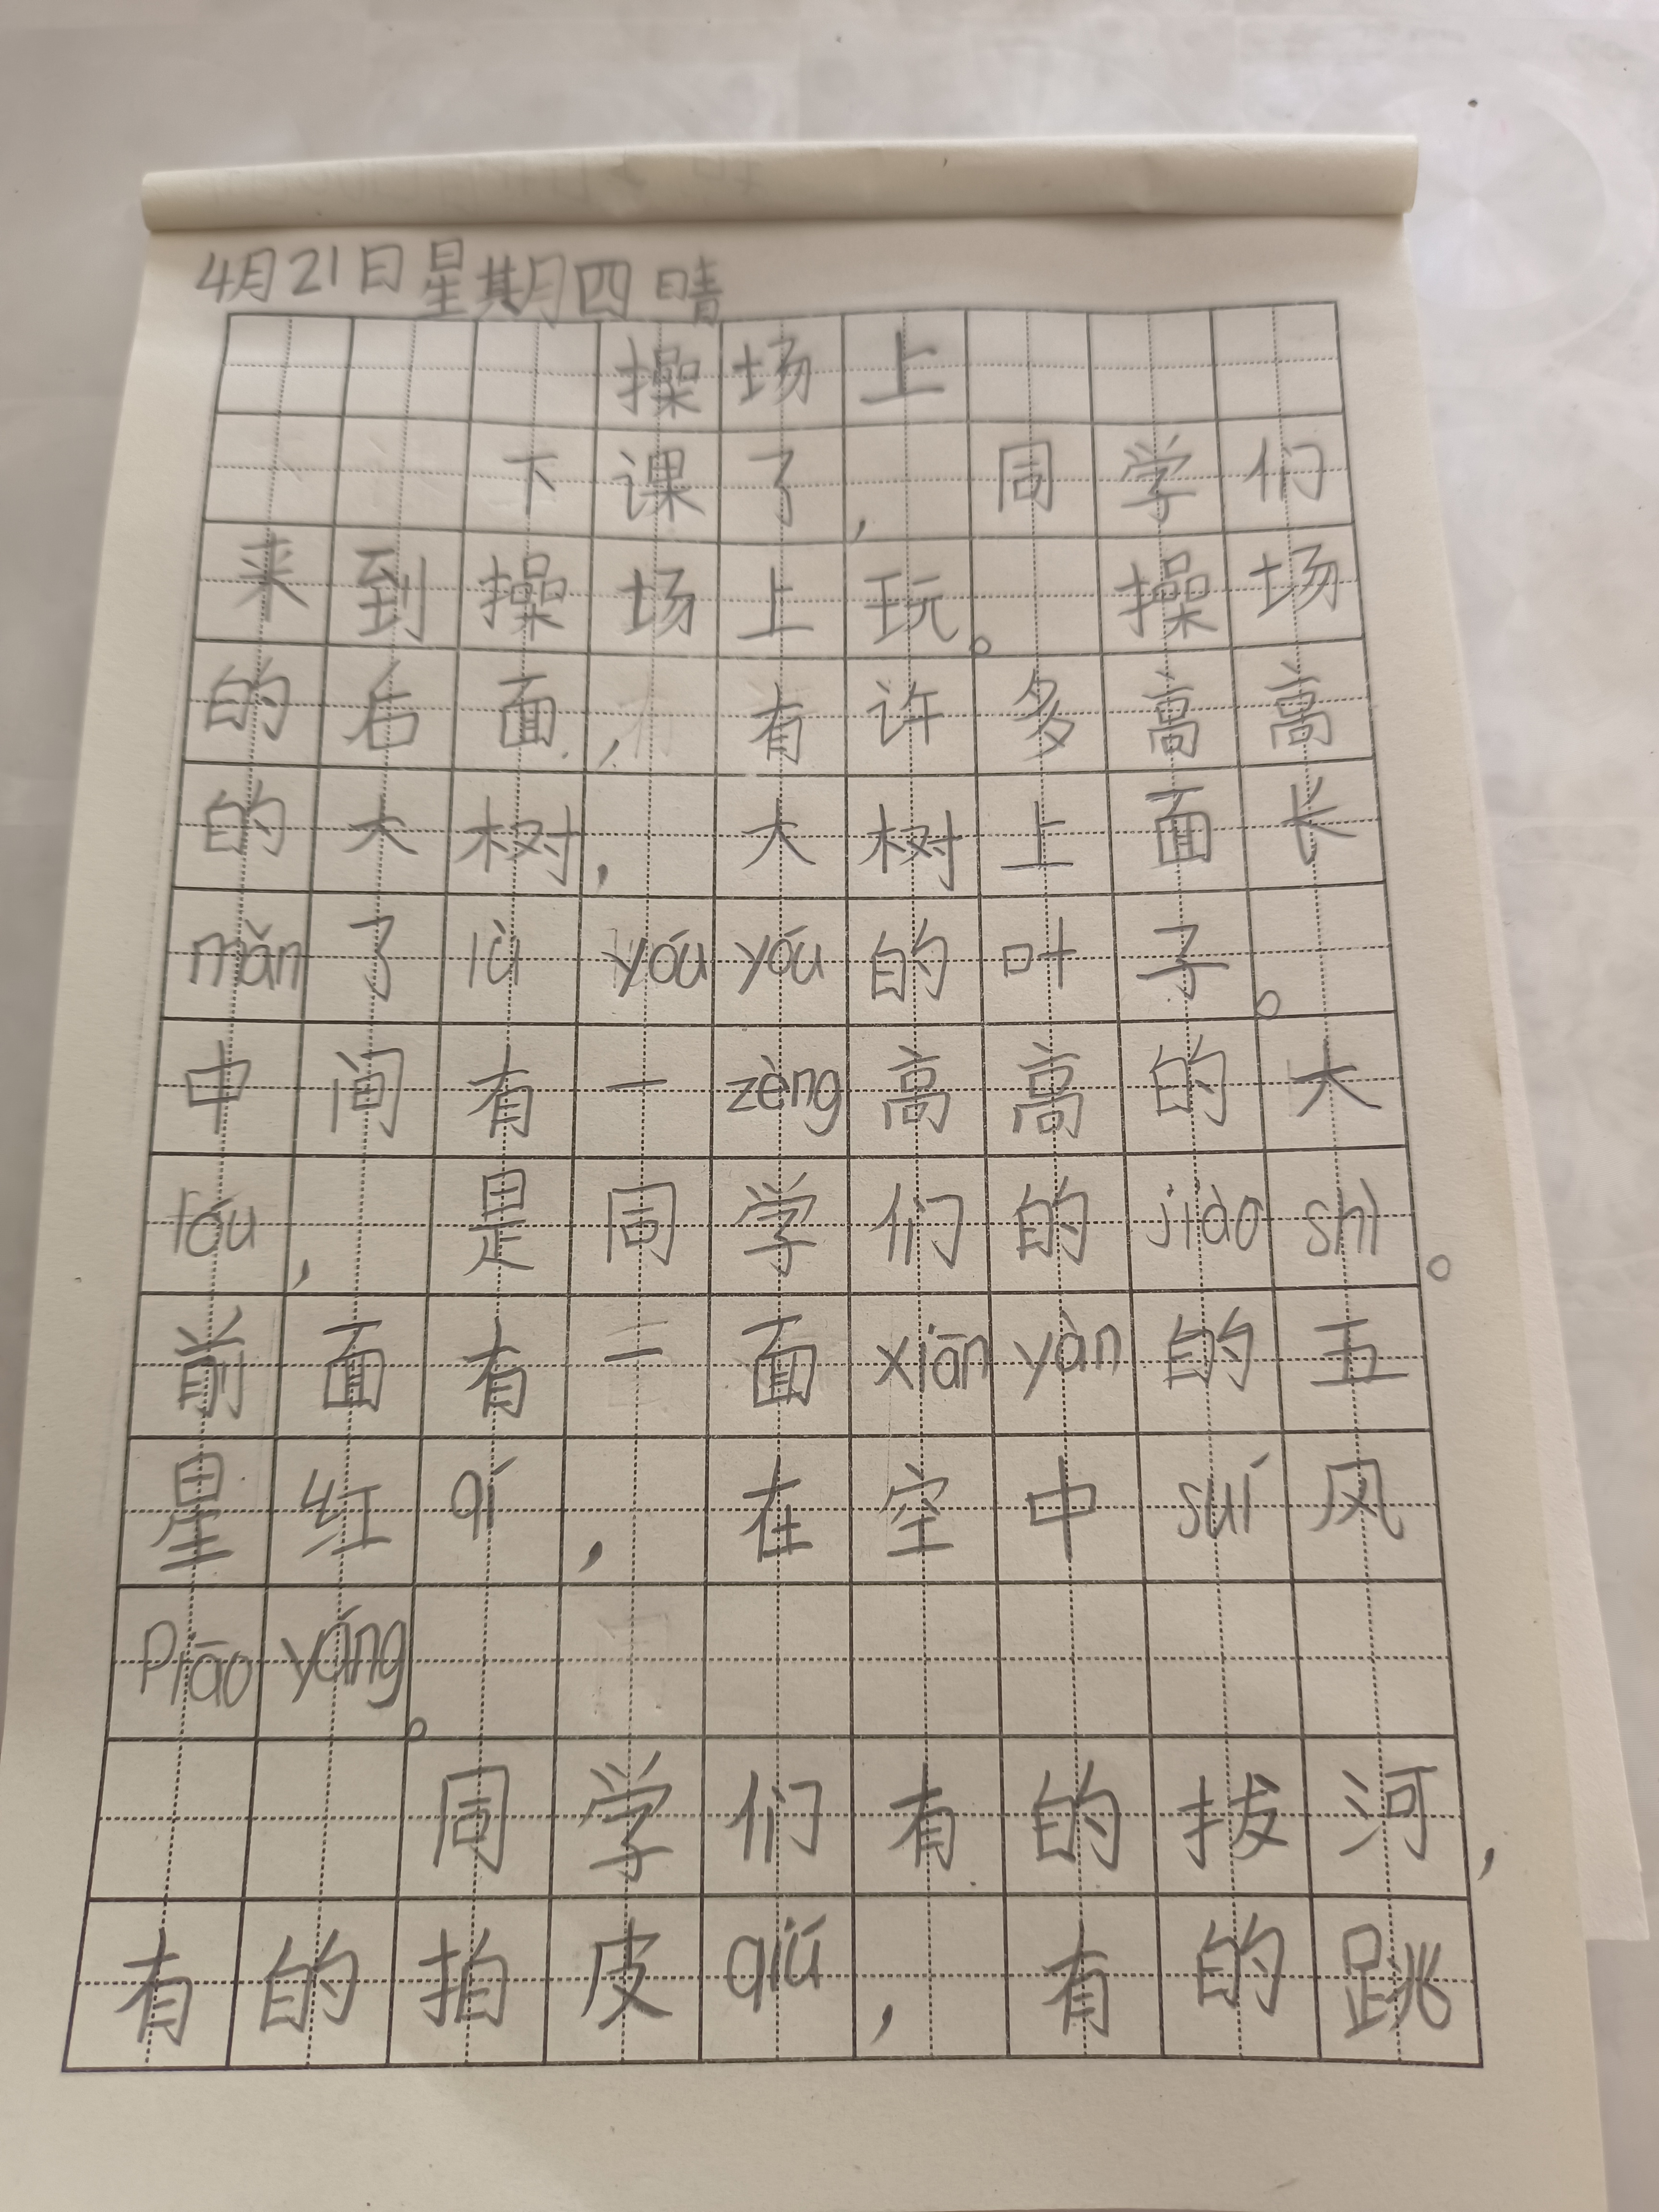 4月21日星期四 晴
操场上
下课了，同学们
来到操场上玩。操场
的右面，有许多高高
的大树，大树上面长
mǎn了lǜ yóu yóu的叶子。
中间有一zèng高高的大
lóu，是同学们的jiào shì。
前面有一面xiān yàn的五
星红qí，在空中suí风
Piāo yáng。
同学们有的拔河，
有的拍皮qiú，有的跳